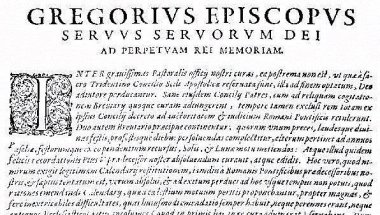 GREGORIVS EPISCOPVS
SERVVS SERVORVM DEI
AD PERPETVAM REI MEMORIAM.
INTER grauissimas Pastoralis officij nostri curas, ea postrema non est, ut quæ à sa-
cro Tridentino Concilio Sedi Apostolicæ reseruata sunt, illa ad finem optatum, Deo
adiutore perducantur. Sane eiusdem Concilij Patres, cum ad reliquam cogitatio-
nem Breuiarij quoque curam adiungerent, tempore tamen exclusi rem totam ex
ipsius Concilij decreto ad auctoritatem & iudicium Romani Pontificis retulerunt.
Duo autem Breuiario præcipue continentur, quorum unum preces, laudesque diui-
nas festis, profestisque diebus persoluendas complectitur, alterum pertinet ad annuos
Paschæ, festorumque ex eo pendentium recursus, Solis, & Lunæ motu metiendos. Atque illud quidem
felicis recordationis Pius V. prædecessor noster absoluendum curauit, atque edidit. Hoc vero, quod ni-
mirum exigit legitimam Calendarij restitutionem, iamdiu à Romanis Pontificibus prædecessoribus no-
stris, & sæpius tentatum est, uerum absolui, & ad exitum perduci ad hoc usque tempus non potuit, quod
rationes emendandi Calendarij, quæ à cœlestium motuum peritis proponebantur, propter magnas, & fere
inextricabiles difficultates, quas huiusmodi emendatio semper habuit, neque perennes erant, neque antiquos